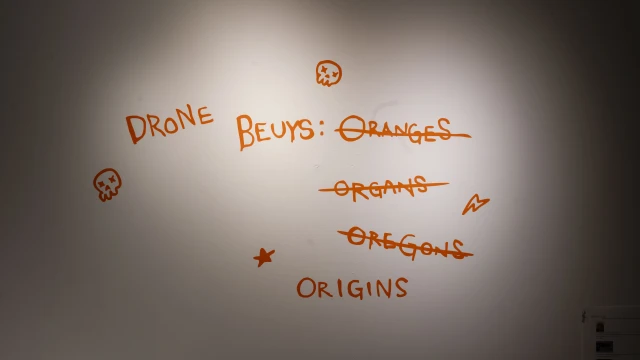 DRONE BEUYS: ORANGES
ORGANS
OREGONS
ORIGINS